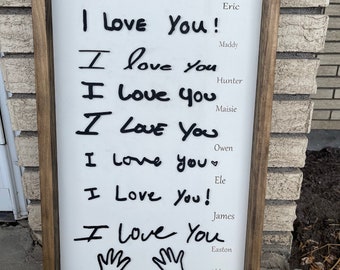 Eric
I Love You!
Maddy
I love you
Hunter
I Love you
Maisie
I Love You
Owen
I Love you
Ele
I Love You!
James
I Love You
Easton